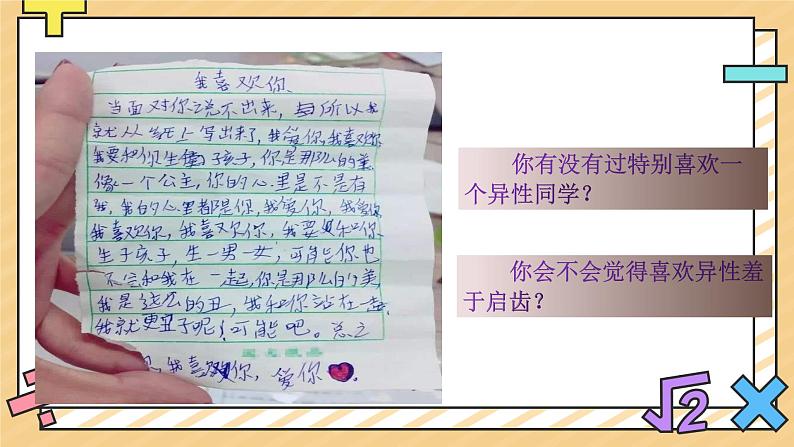 我喜欢你
当面对你说不出来，与所以我
就从纸上写出来了，我爱你，我喜欢你
我要和你生孩子，你是那么的美，
像一个公主，你的心里是不是有
我，我的心里都是你，我爱你，我爱你
我喜欢你，我喜欢你，我要和你
生子孩子，生一男一女；可能你也
不会和我在一起，你是那么的美
我是这么的丑，我和你站在一起
我就更丑了呢！可能吧。总之
我喜欢你，爱你
你有没有过特别喜欢一
个异性同学？
你会不会觉得喜欢异性羞
于启齿？
√2